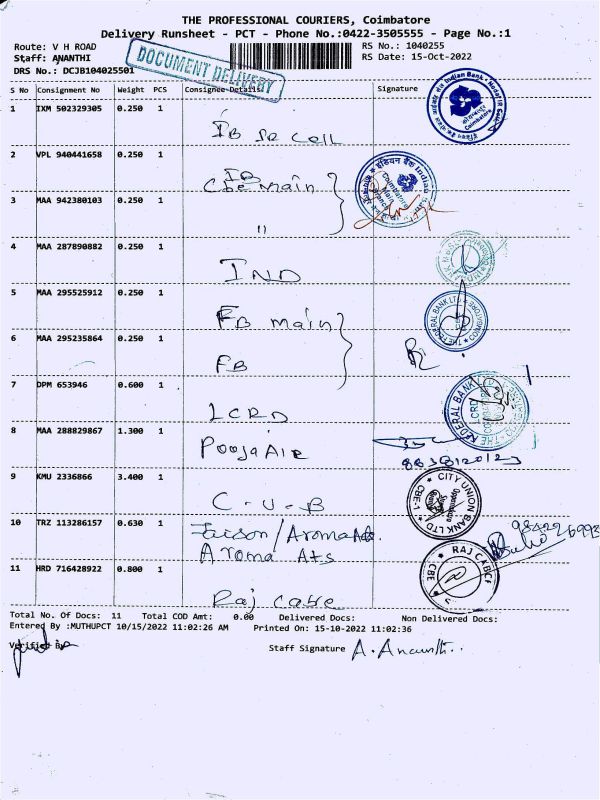 THE PROFESSIONAL COURIERS, Coimbatore
Delivery Runsheet - PCT - Phone No.:0422-3505555 - Page No.:1
Route: V H ROAD RS No.: 1040255
Staff: ANANTHI RS Date: 15-Oct-2022
DRS No.: DCJB104025501
DOCUMENT DELIVERY
S No Consignment No Weight PCS Consignee Details Signature
1 IXM 502329305 0.250 1
IB Se Cell
2 VPL 940441658 0.250 1 IB
Cbe Main
3 MAA 942380103 0.250 1
"
4 MAA 287890882 0.250 1
IND
5 MAA 295525912 0.250 1
FB main
6 MAA 295235864 0.250 1
FB
7 DPM 653946 0.600 1
LCRD
8 MAA 288829867 1.300 1 Pooja Air
9 KMU 2336866 3.400 1
C-U-B
CITY UNION BANK LTD CBE-1
10 TRZ 113286157 0.630 1
Aroma Ats
11 HRD 716428922 0.800 1
Raj Cabe
Total No. Of Docs: 11 Total COD Amt: 0.00 Delivered Docs: Non Delivered Docs:
Entered By :MUTHUPCT 10/15/2022 11:02:26 AM Printed On: 15-10-2022 11:02:36
Verified By Staff Signature A. Ananthi..